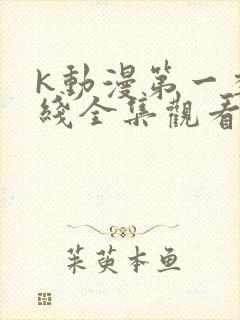 K動漫第一季
綫全集觀看
茱萸本鱼